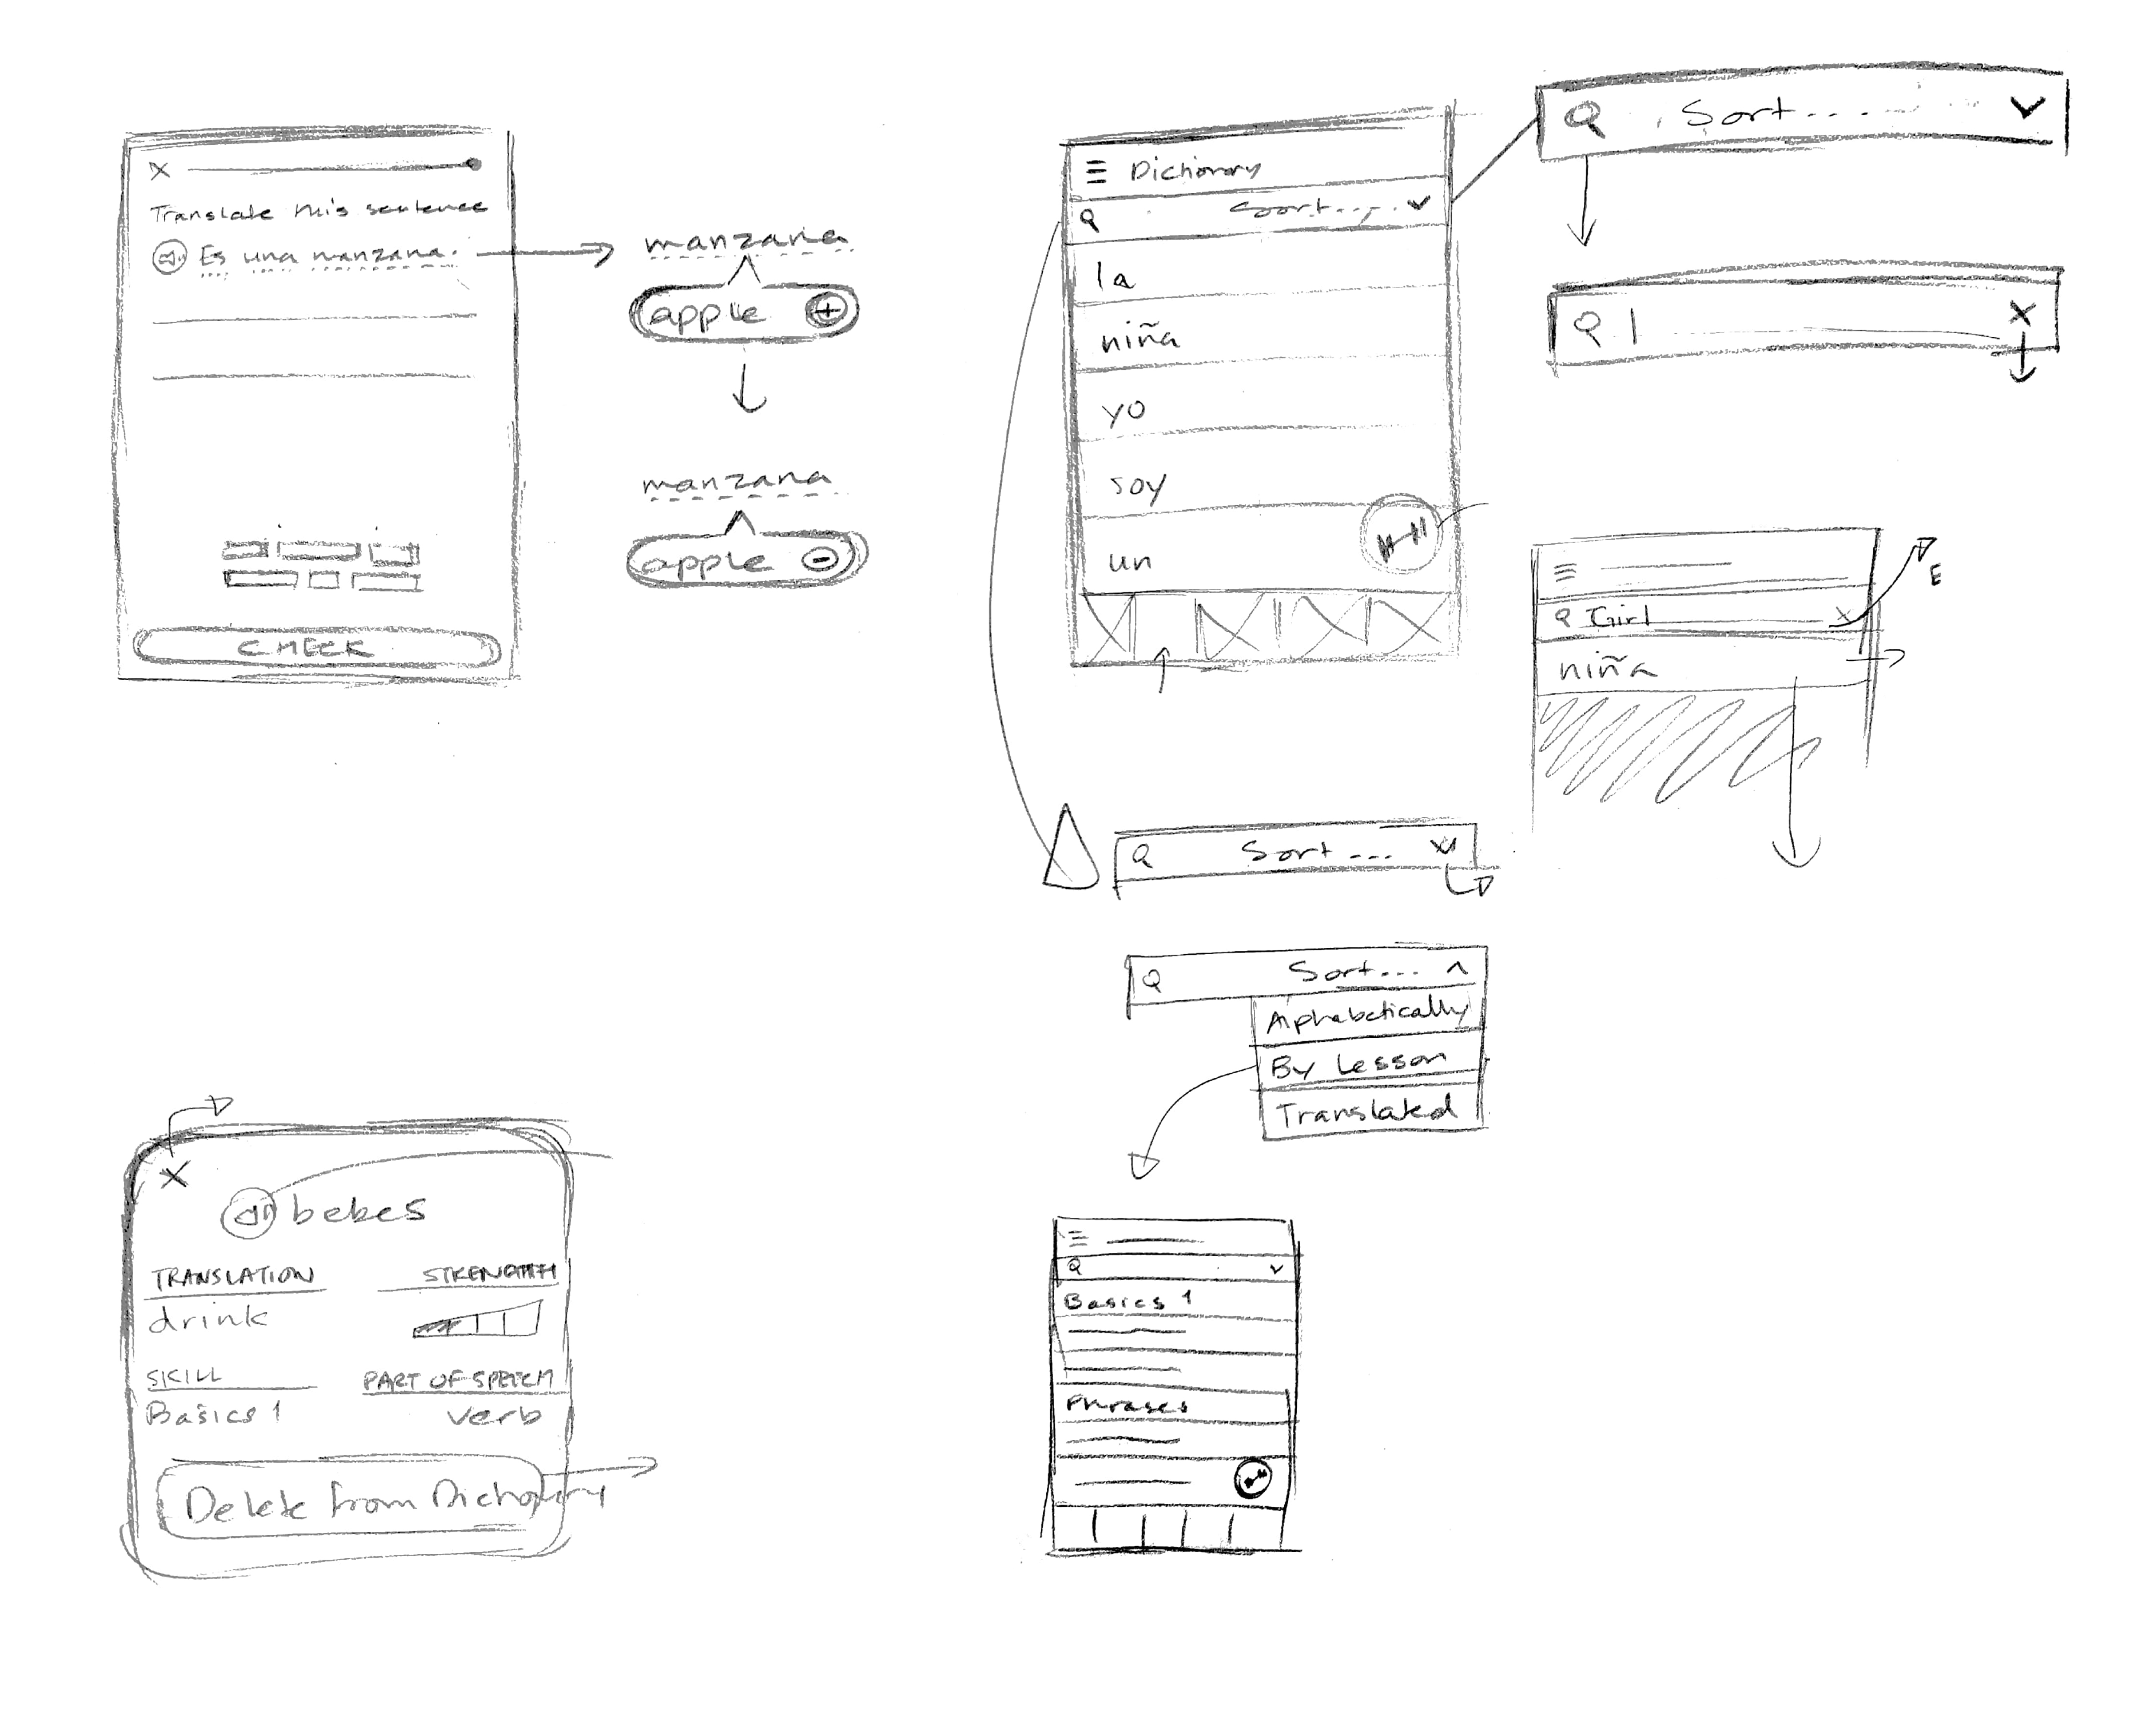 X
Translate this sentence
Es una manzana.
CHECK
manzana
apple +
manzana
apple -
Dictionary
Sort....
la
niña
yo
soy
un
Sort....
X
Girl X
niña
E
Sort...
Sort...
Alphabetically
By Lesson
Translated
Basics 1
Phrases
X
bebes
TRANSLATION STRENGTH
drink
SKILL PART OF SPEECH
Basics 1 verb
Delete from Dictionary